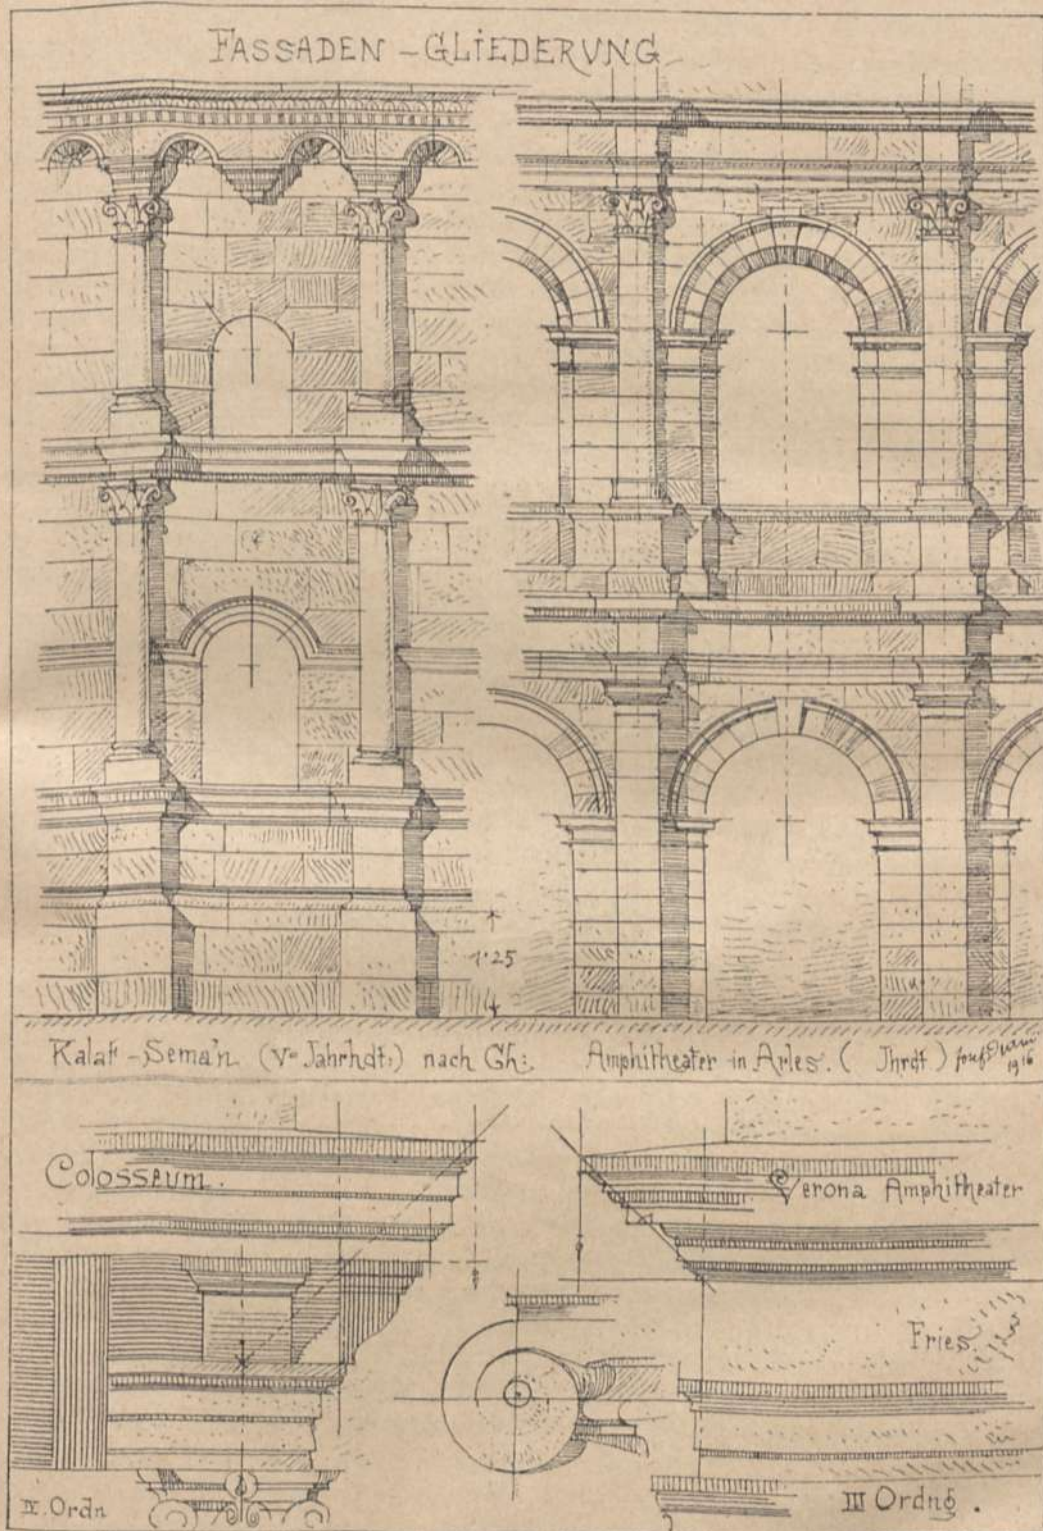 FASSADEN - GLIEDERVNG
1·25
Kalat - Sema'n (Vᵉ Jahrhdt:) nach Gh:
Amphitheater in Arles. ( Jhrdt.) 1916
Colosseum.
Verona Amphitheater
Fries.
IV. Ordn
III Ordng.